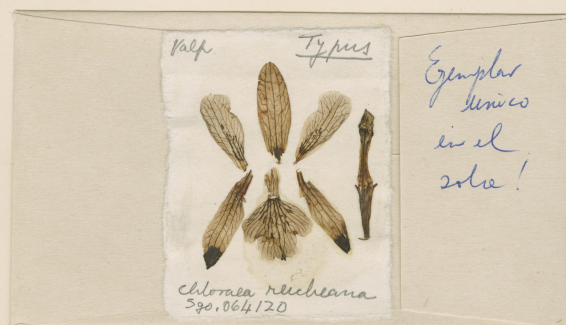 Valp
Typus
Chloraea reicheana
Sgo. 064120
Ejemplar
único
en el
sobre!